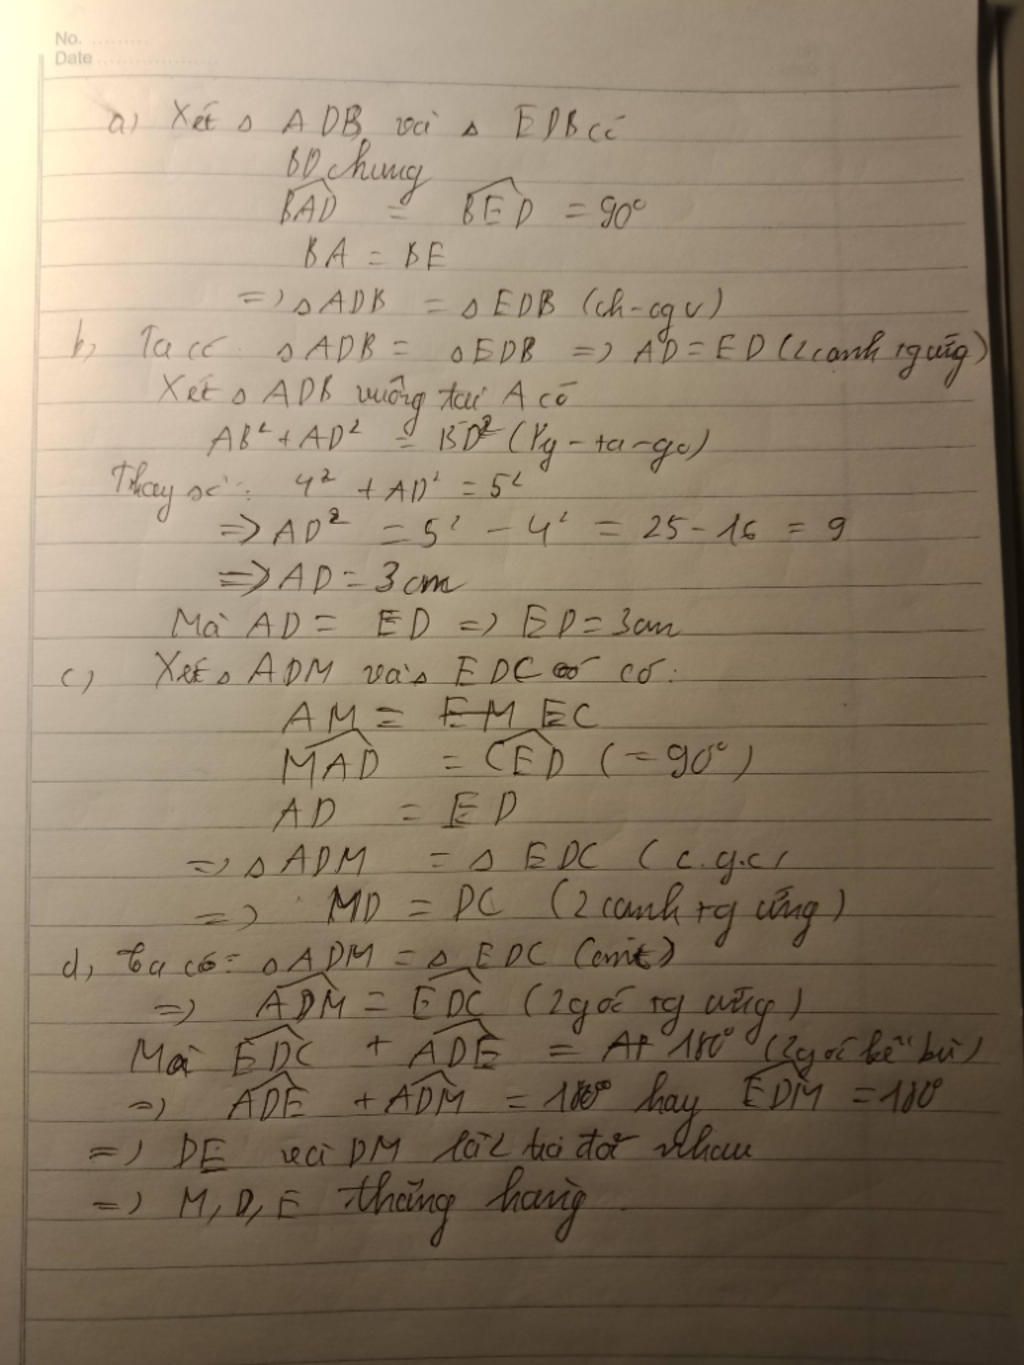 No. ..........
Date ....................
a) Xét Δ ADB và Δ EDB có
BD chung
BAD = BED = 90°
BA = BE
=> Δ ADB = Δ EDB (ch-cgv)
b, Ta có Δ ADB = Δ EDB => AD = ED (2 cạnh tg ứng)
Xét Δ ADB vuông tại A có
AB² + AD² = BD² (Py-ta-go)
Thay số: 4² + AD² = 5²
=> AD² = 5² - 4² = 25 - 16 = 9
=> AD = 3 cm
Mà AD = ED => ED = 3cm
c) Xét Δ ADM và Δ EDC có:
AM = EM EC
MAD = CED (= 90°)
AD = ED
=> Δ ADM = Δ EDC (c.g.c)
=> MD = DC (2 cạnh tg ứng)
d, Ta có: Δ ADM = Δ EDC (cmt)
=> ADM = EDC (2 góc tg ứng)
Mà EDC + ADE = 180° (2 góc kề bù)
=> ADE + ADM = 180° hay EDM = 180°
=> DE và DM là 2 tia đối nhau
=> M, D, E thẳng hàng